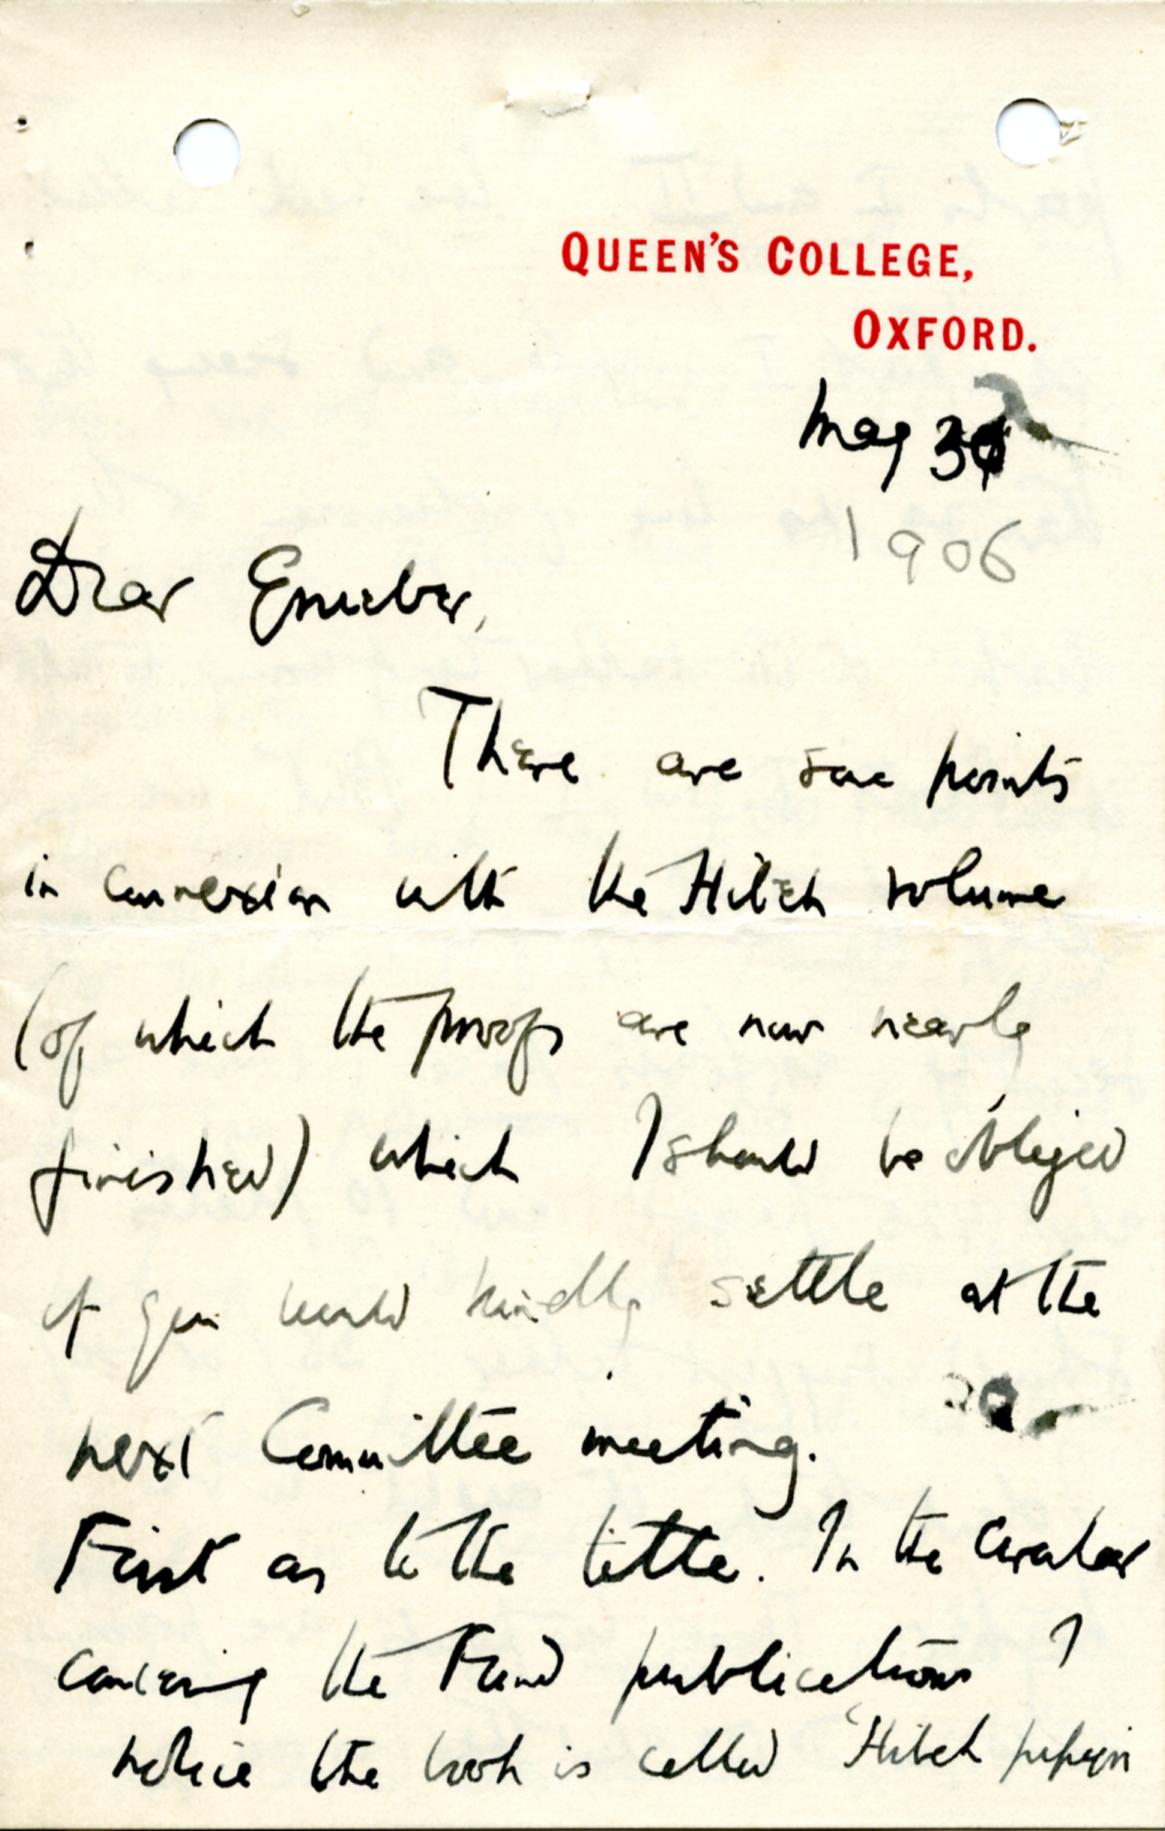 QUEEN'S COLLEGE,
OXFORD.
May 31
1906
Dear Grueber,
There are some points
in connexion with the Hibeh volume
(of which the proofs are now nearly
finished) which I should be obliged
if you would kindly settle at the
next Committee meeting.
First as to the title. In the circular
concerning the Fund publications I
notice the book is called 'Hibeh papyri